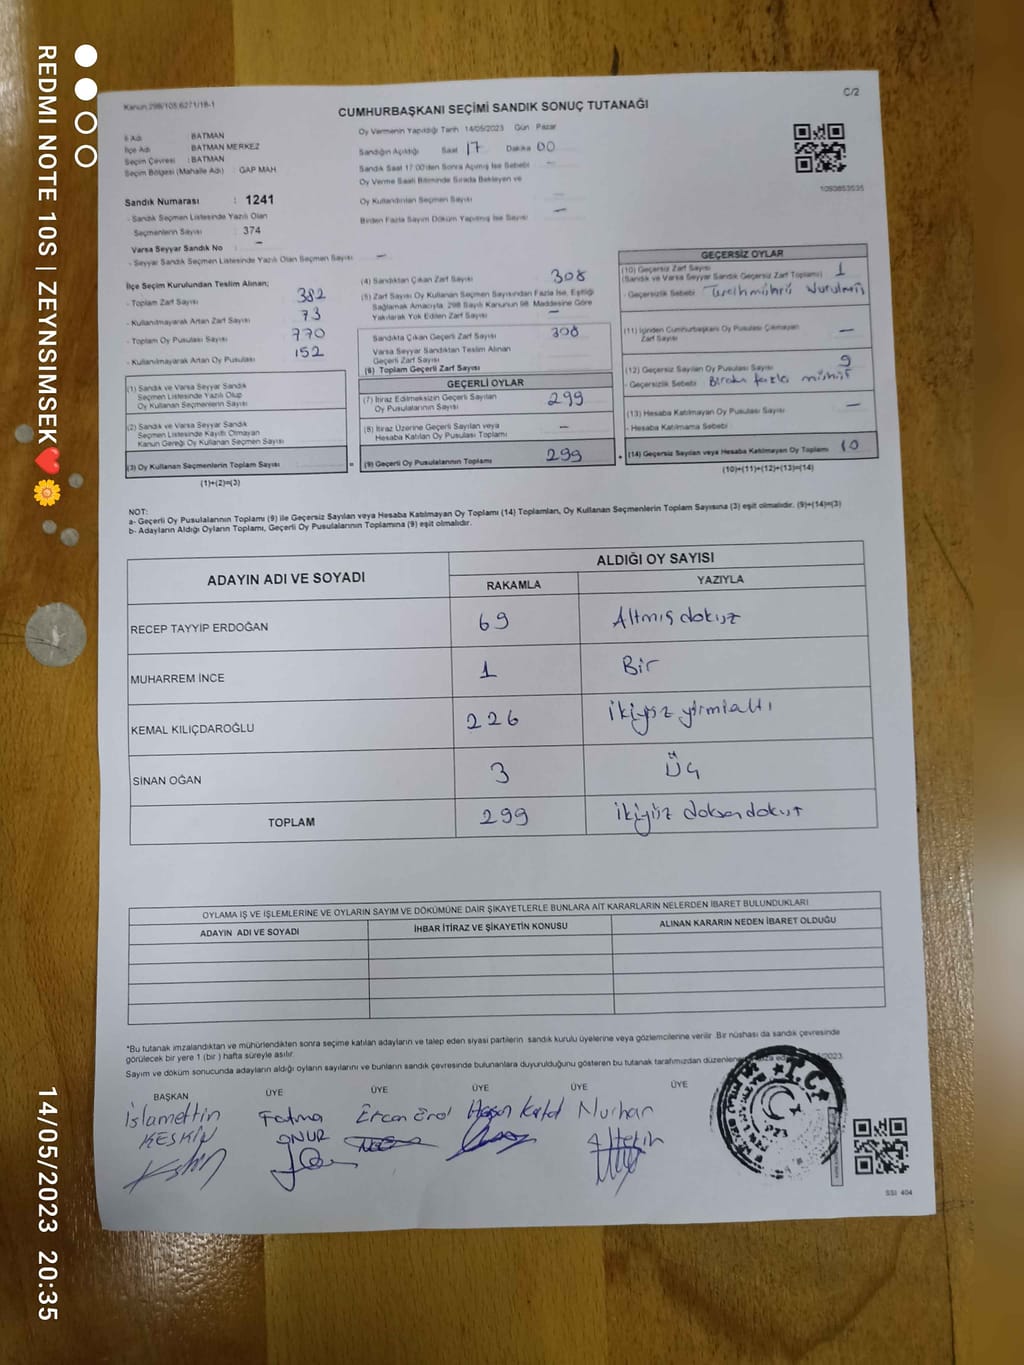 Kanun 298/105 6271/18-1
C/2
CUMHURBAŞKANI SEÇİMİ SANDIK SONUÇ TUTANAĞI
İl Adı : BATMAN
İlçe Adı : BATMAN MERKEZ
Seçim Çevresi : BATMAN
Seçim Bölgesi (Mahalle Adı) : GAP MAH.
Sandık Numarası : 1241
- Sandık Seçmen Listesinde Yazılı Olan
Seçmenlerin Sayısı : 374
Varsa Seyyar Sandık No : –
- Seyyar Sandık Seçmen Listesinde Yazılı Olan Seçmen Sayısı –
Oy Vermenin Yapıldığı Tarih 14/05/2023 Gün Pazar
Sandığın Açıldığı Saat 17 Dakika 00
Sandık Saat 17:00'den Sonra Açılmış İse Sebebi –
Oy Verme Saati Bitiminde Sırada Bekleyen ve
Oy Kullandırılan Seçmen Sayısı –
Birden Fazla Sayım Döküm Yapılmış İse Sayısı –
1093853535
İlçe Seçim Kurulundan Teslim Alınan;
- Toplam Zarf Sayısı 382
- Kullanılmayarak Artan Zarf Sayısı 73
- Toplam Oy Pusulası Sayısı 770
- Kullanılmayarak Artan Oy Pusulası 152
(1) Sandık ve Varsa Seyyar Sandık
Seçmen Listesinde Yazılı Olup
Oy Kullanan Seçmenlerin Sayısı
(2) Sandık ve Varsa Seyyar Sandık
Seçmen Listesinde Kayıtlı Olmayan
Kanun Gereği Oy Kullanan Seçmen Sayısı
(3) Oy Kullanan Seçmenlerin Toplam Sayısı
(1)+(2)=(3)
(4) Sandıktan Çıkan Zarf Sayısı 308
(5) Zarf Sayısı Oy Kullanan Seçmen Sayısından Fazla İse, Eşitliği
Sağlamak Amacıyla, 298 Sayılı Kanunun 98. Maddesine Göre
Yakılarak Yok Edilen Zarf Sayısı –
Sandıkta Çıkan Geçerli Zarf Sayısı 308
Varsa Seyyar Sandıktan Teslim Alınan
Geçerli Zarf Sayısı
(6) Toplam Geçerli Zarf Sayısı
GEÇERLİ OYLAR
(7) İtiraz Edilmeksizin Geçerli Sayılan
Oy Pusulalarının Sayısı 299
(8) İtiraz Üzerine Geçerli Sayılan veya
Hesaba Katılan Oy Pusulası Toplamı –
= (9) Geçerli Oy Pusulalarının Toplamı 299 +
GEÇERSİZ OYLAR
(10) Geçersiz Zarf Sayısı
(Sandık ve Varsa Seyyar Sandık Geçersiz Zarf Toplamı) 1
- Geçersizlik Sebebi
(11) İçinden Cumhurbaşkanı Oy Pusulası Çıkmayan
Zarf Sayısı –
(12) Geçersiz Sayılan Oy Pusulası Sayısı 9
- Geçersizlik Sebebi fazla mühür
(13) Hesaba Katılmayan Oy Pusulası Sayısı –
- Hesaba Katılmama Sebebi
(14) Geçersiz Sayılan veya Hesaba Katılmayan Oy Toplamı 10
(10)+(11)+(12)+(13)=(14)
NOT:
a- Geçerli Oy Pusulalarının Toplamı (9) ile Geçersiz Sayılan veya Hesaba Katılmayan Oy Toplamı (14) Toplamları, Oy Kullanan Seçmenlerin Toplam Sayısına (3) eşit olmalıdır. (9)+(14)=(3)
b- Adayların Aldığı Oyların Toplamı, Geçerli Oy Pusulalarının Toplamına (9) eşit olmalıdır.
ADAYIN ADI VE SOYADI
ALDIĞI OY SAYISI
RAKAMLA YAZIYLA
RECEP TAYYİP ERDOĞAN 69 Altmış dokuz
MUHARREM İNCE 1 Bir
KEMAL KILIÇDAROĞLU 226 ikiyüz yirmialtı
SİNAN OĞAN 3 Üç
TOPLAM 299 ikiyüz doksandokuz
OYLAMA İŞ VE İŞLEMLERİNE VE OYLARIN SAYIM VE DÖKÜMÜNE DAİR ŞİKAYETLERLE BUNLARA AİT KARARLARIN NELERDEN İBARET BULUNDUKLARI
ADAYIN ADI VE SOYADI İHBAR İTİRAZ VE ŞİKAYETİN KONUSU ALINAN KARARIN NEDEN İBARET OLDUĞU
*Bu tutanak imzalandıktan ve mühürlendikten sonra seçime katılan adayların ve talep eden siyasi partilerin sandık kurulu üyelerine veya gözlemcilerine verilir. Bir nüshası da sandık çevresinde
görülecek bir yere 1 (bir) hafta süreyle asılır.
Sayım ve döküm sonucunda adayların aldığı oyların sayılarını ve bunların sandık çevresinde bulunanlara duyurulduğunu gösteren bu tutanak tarafımızdan
BAŞKAN ÜYE ÜYE ÜYE ÜYE ÜYE
İslamettin Fatma Ercan Hasan Nurhan
KESKİN ONUR
T.C.
SSI 404
REDMI NOTE 10S | ZEYNSIMSEK❤️🌼
14/05/2023 20:35